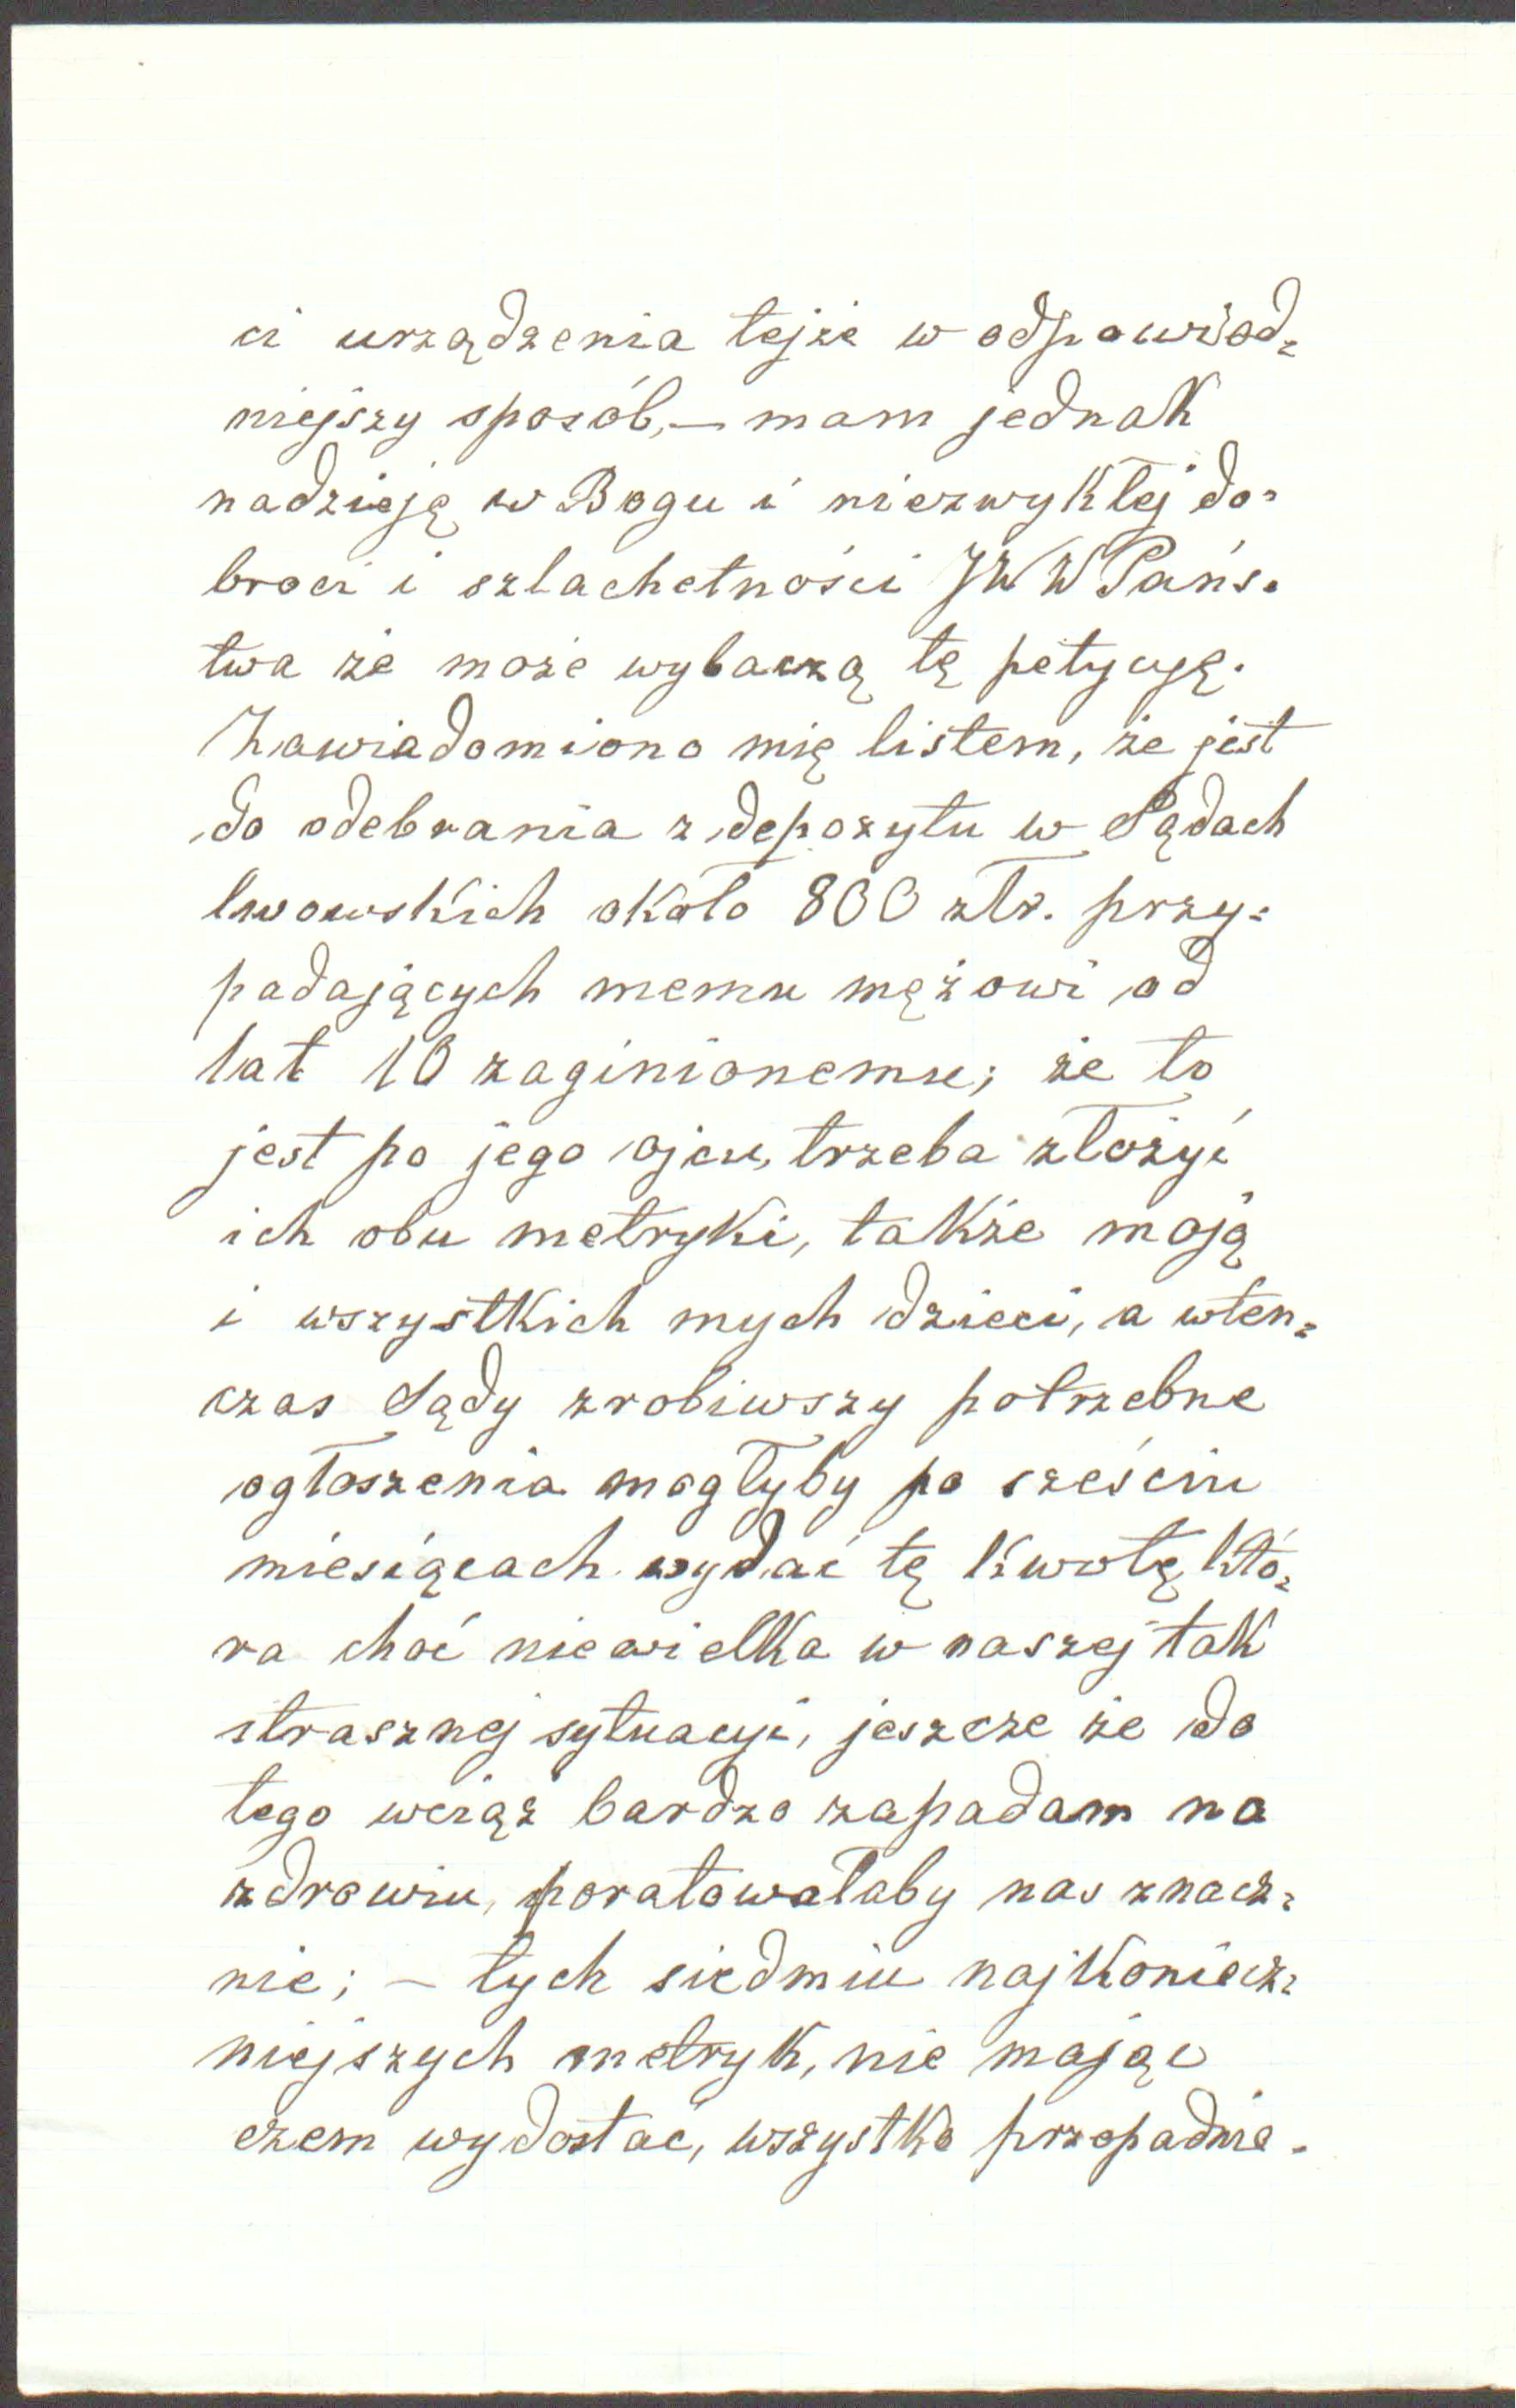 ci urządzenia tejże w odpowied=
niejszy sposób, — mam jednak
nadzieję w Bogu i niezwykłej do=
broci i szlachetności JWW Pańs=
twa że może wybaczą tę petycyę.
Zawiadomiono mię listem, że jest
do odebrania z depozytu w Sądach
lwowskich około 800 złr. przy=
padających memu mężowi od
lat 10 zaginionemu; że to
jest po jego ojcu, trzeba złożyć
ich obu metryki, także moją
i wszystkich mych dzieci, a wten=
czas Sądy zrobiwszy potrzebne
ogłoszenia mogłyby po sześciu
miesiącach wydać tę kwotę któ=
ra choć niewielka w naszej tak
strasznej sytuacyi, jeszcze że do
tego wciąż bardzo zapadam na
zdrowiu, poratowałaby nas znacz=
nie; — tych siedmiu najkoniecz=
niejszych metryk, nie mając
czem wydostać, wszystko przepadnie.